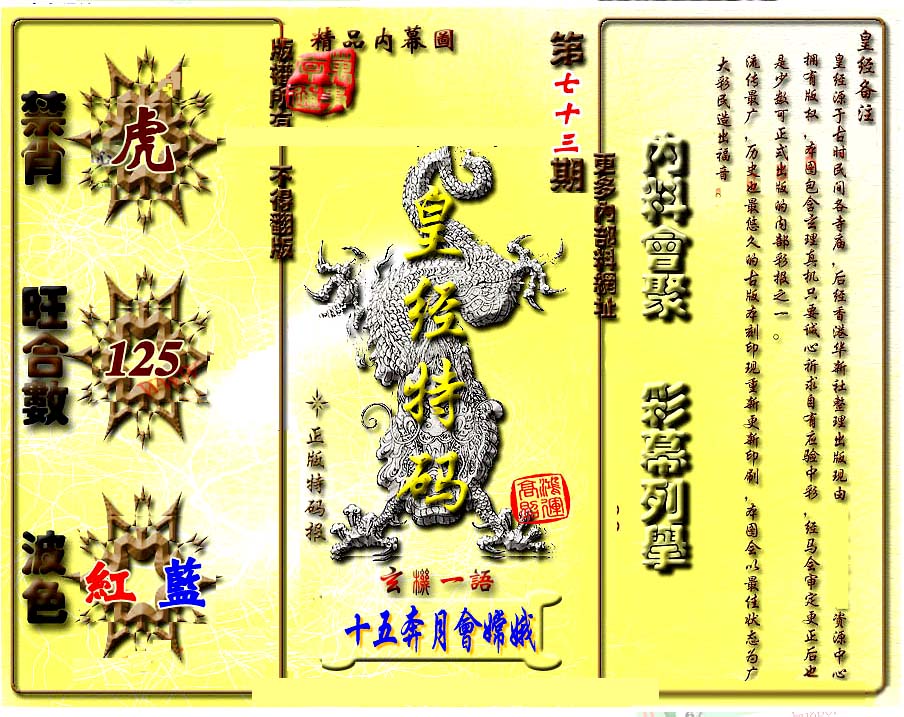 精品内幕圖
版權所有
不得翻版
第七十三期
更多內部料網址
禁肖
虎
旺合數
125
波色
紅 藍
皇经特码
正版特码报
鴻運高照
玄機一語
十五奔月會嫦娥
內料會聚
彩幕列舉
皇经备注
皇经源于古时民间各寺庙，后经香港华新社整理出版现由 资源中心
拥有版权，本图包含玄理真机只要诚心祈求自有应验中彩，经马会审定更正后也
是少数可正式出版的内部彩报之一。
流传最广，历史也最悠久的古版本刻印现重新更新印刷，本图会以最佳状态为广
大彩民造出福音